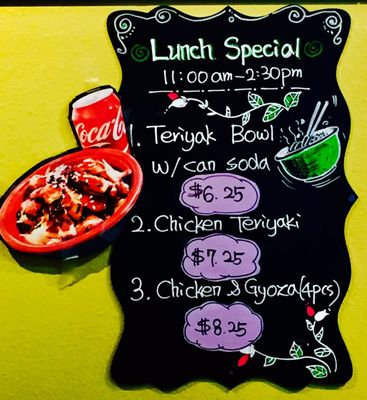 Lunch Special
11:00am-2:30pm
Coca-Cola
1. Teriyak Bowl
w/can soda
$6.25
2. Chicken Teriyaki
$7.25
3. Chicken & Gyoza(4pcs)
$8.25